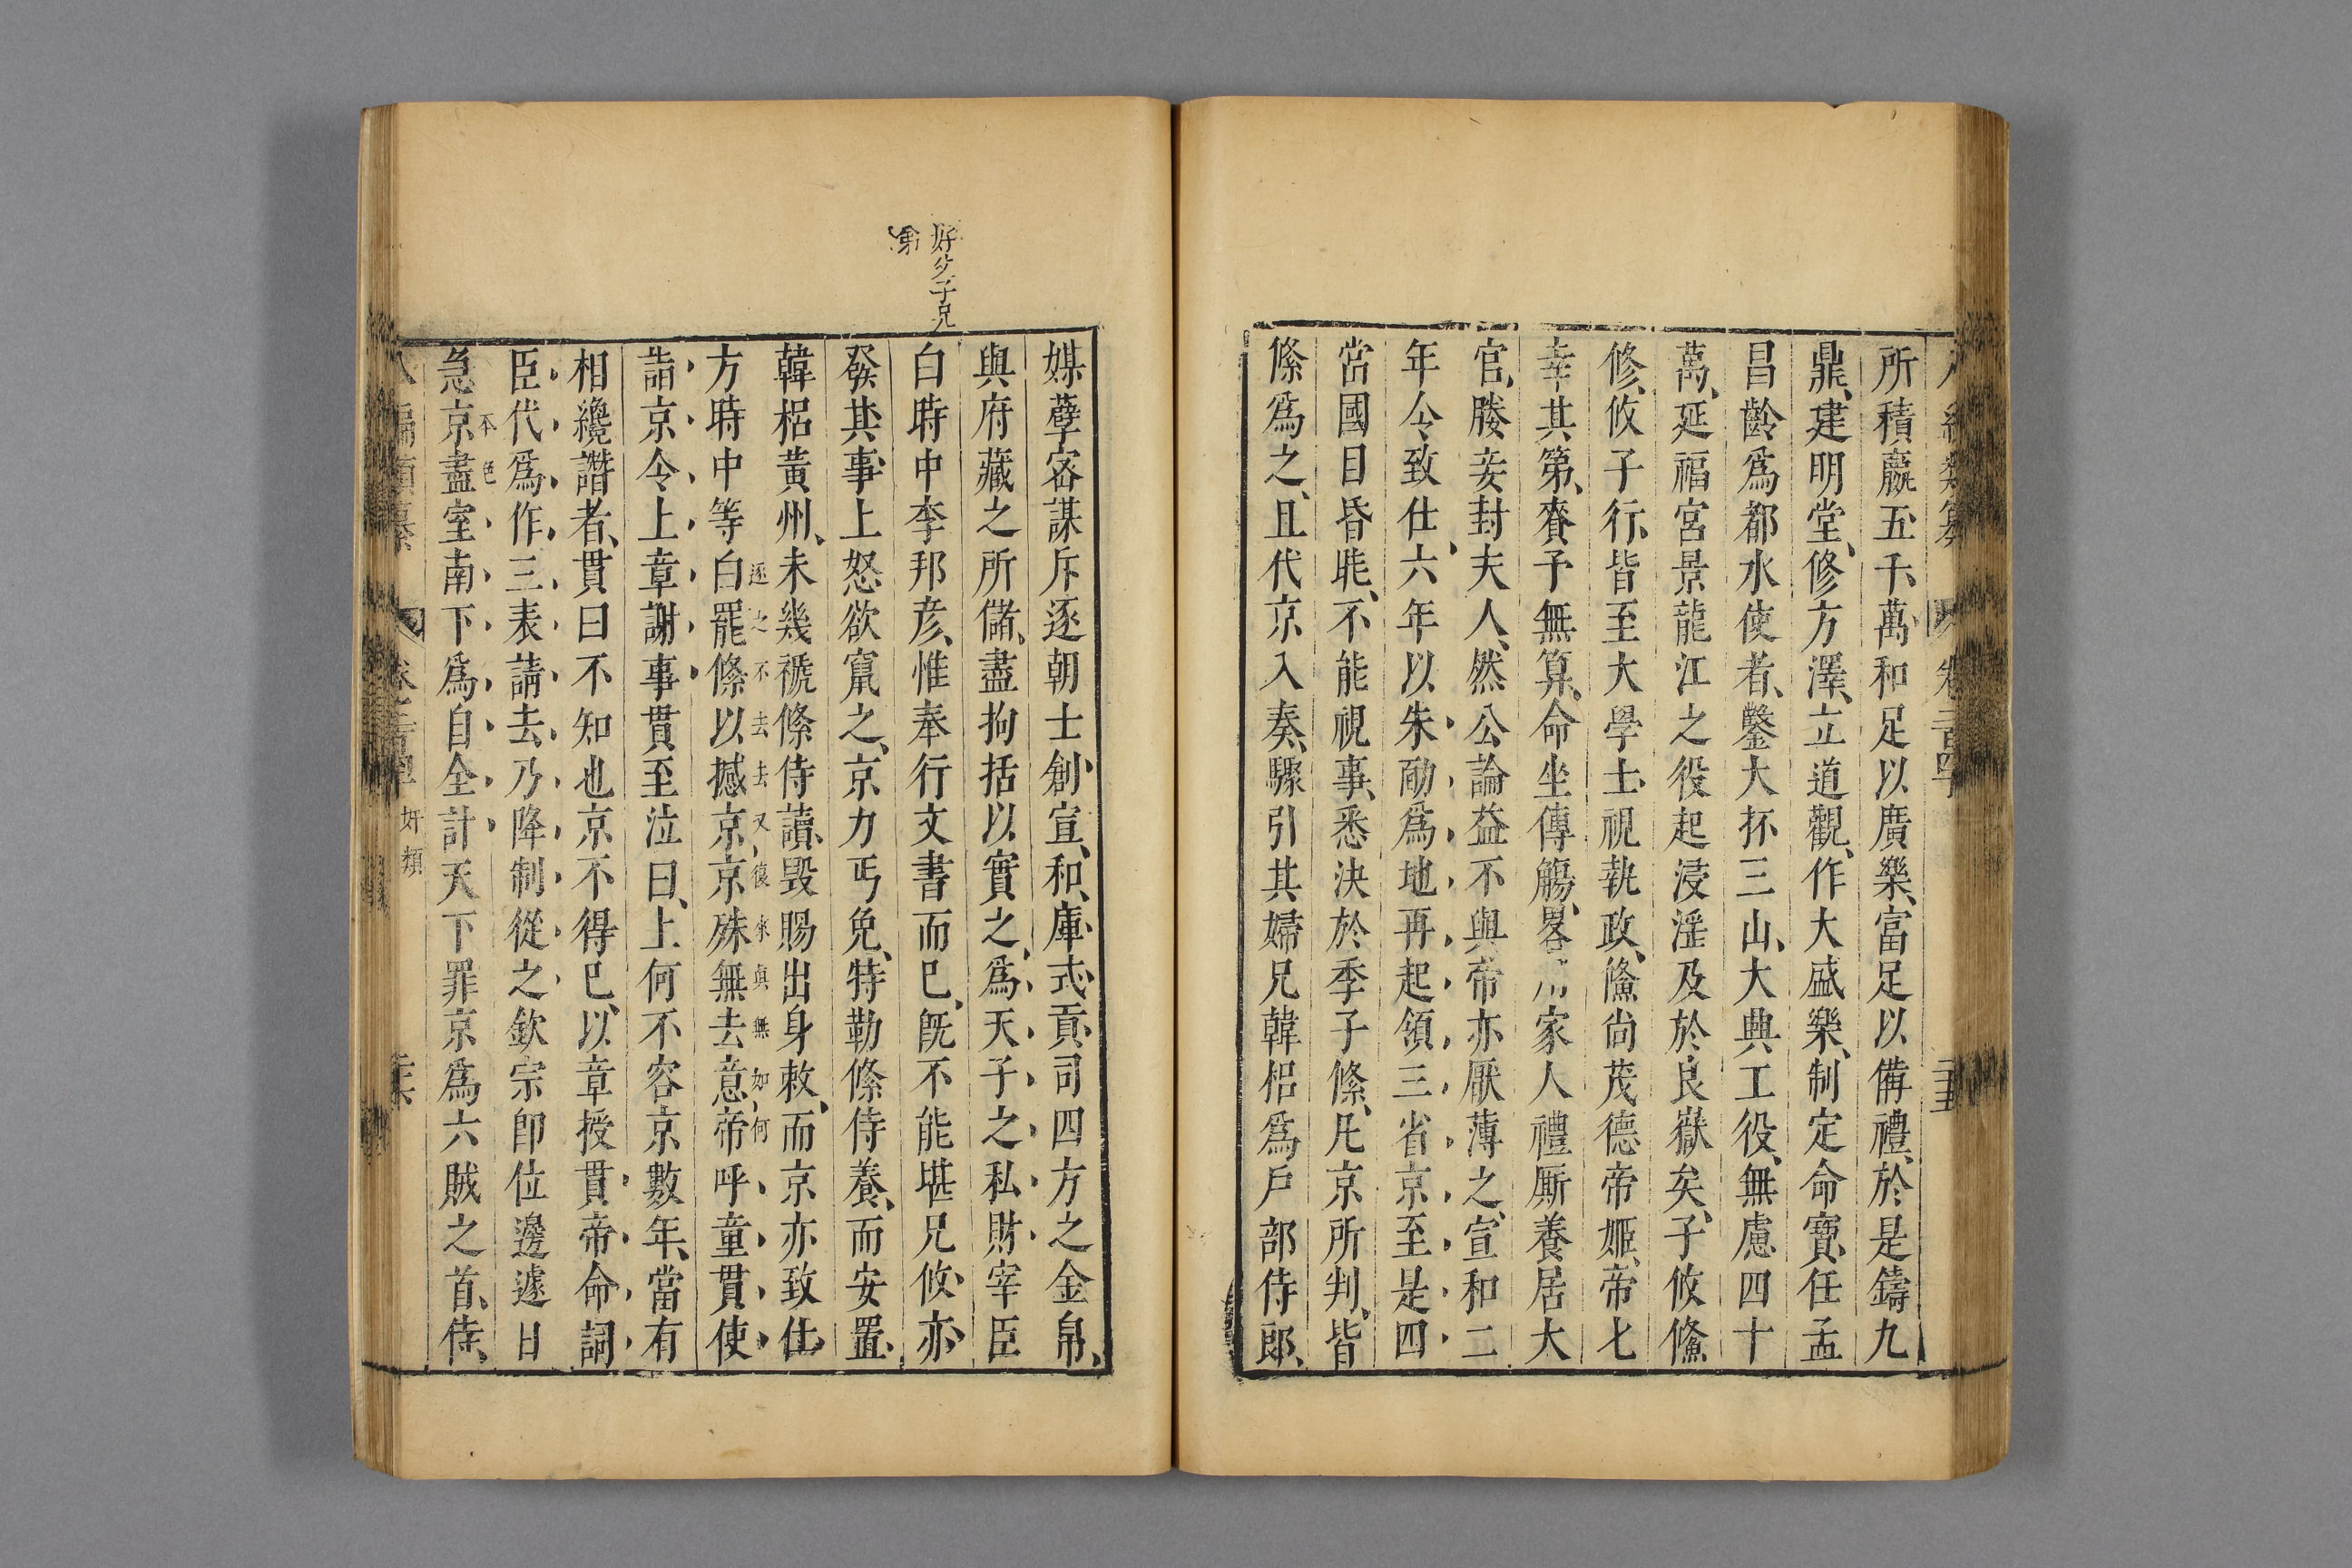 所積贏五千萬和足以廣樂富足以備禮於是鑄九
鼎建明堂修方澤立道觀作大盛樂制定命寶任孟
昌齡爲都水使者鑿大伾三山大典工役無慮四十
萬延福宮景龍江之役起浸淫及於艮嶽矣子攸鯈
修攸子行皆至大學士視執政鯈尚茂德帝姬帝七
幸其第賚予無算命坐傳觴畧用家人禮厮養居大
官媵妾封夫人然公論益不與帝亦厭薄之宣和二
年令致仕六年以朱勔爲地再起領三省京至是四
當國目昏眊不能視事悉決於季子絛凡京所判皆
絛爲之且代京入奏驟引其婦兄韓梠爲戶部侍郎
媒孽密謀斥逐朝士創宣和庫式貢司四方之金帛
與府藏之所儲盡拘括以實之爲天子之私財宰臣
好父子兄
弟
白時中李邦彥惟奉行文書而已旣不能堪兄攸亦
發其事上怒欲竄之京力丐免特勒絛侍養而安置
韓梠黃州未幾褫絛侍讀毀賜出身敕而京亦致仕
逐之不去去又復來眞無如何
方時中等白罷絛以撼京京殊無去意帝呼童貫使
詣京令上章謝事貫至泣曰上何不容京數年當有
相纔譖者貫曰不知也京不得已以章授貫帝命詞
臣代爲作三表請去乃降制從之欽宗卽位邊遽日
急京盡室南下爲自全計天下罪京爲六賊之首侍
奸類